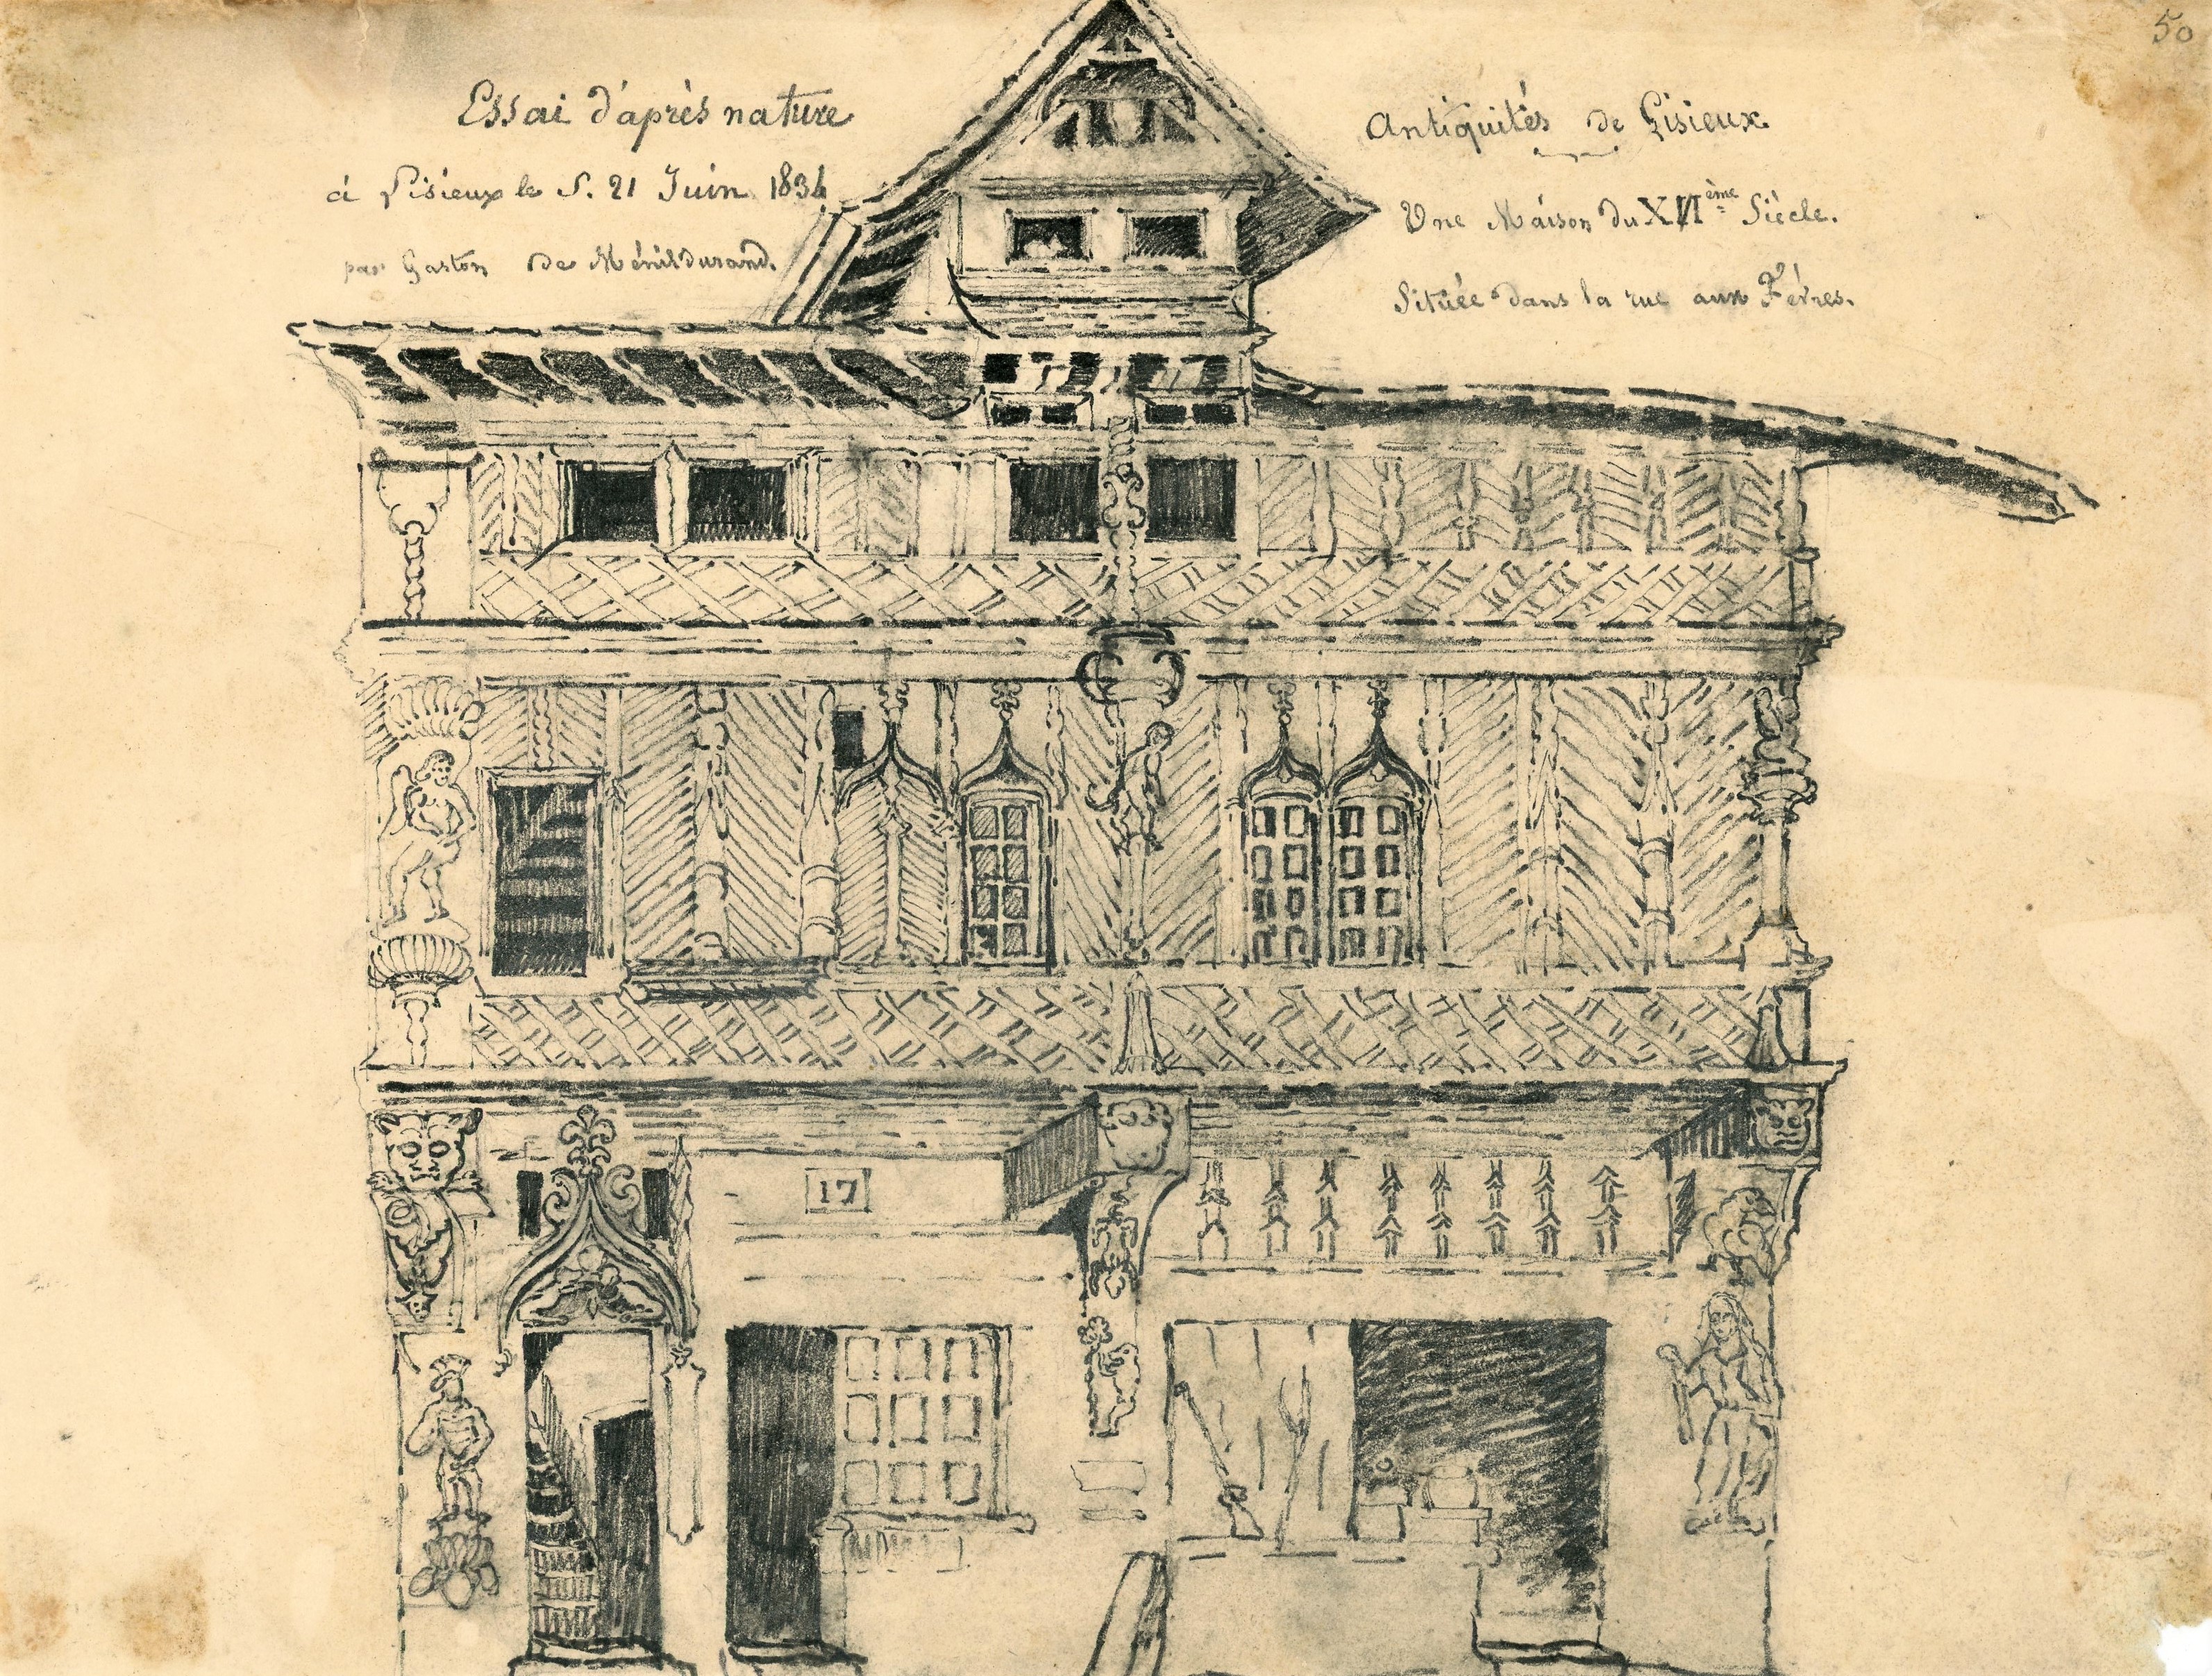 50
Essai d'après nature
à Lisieux le S. 21 Juin 1834
par Gaston de Ménildurand.
Antiquités de Lisieux
Une Maison du XVIème Siècle.
Située dans la rue aux Fèvres.
17